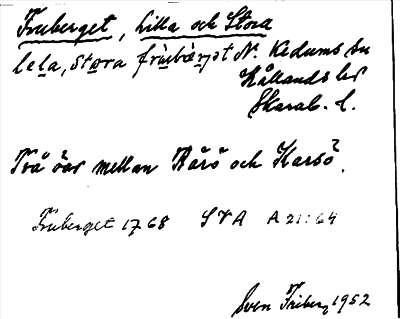 Fruberget, Lilla och Stora
lela, stora frùbærjət N. Kedums sn
Kållands hd
Skarab. l.
Två öar mellan Rårö och Karsö.
Fruberget 1768 SVA A 21:64
Sven Friberg 1952